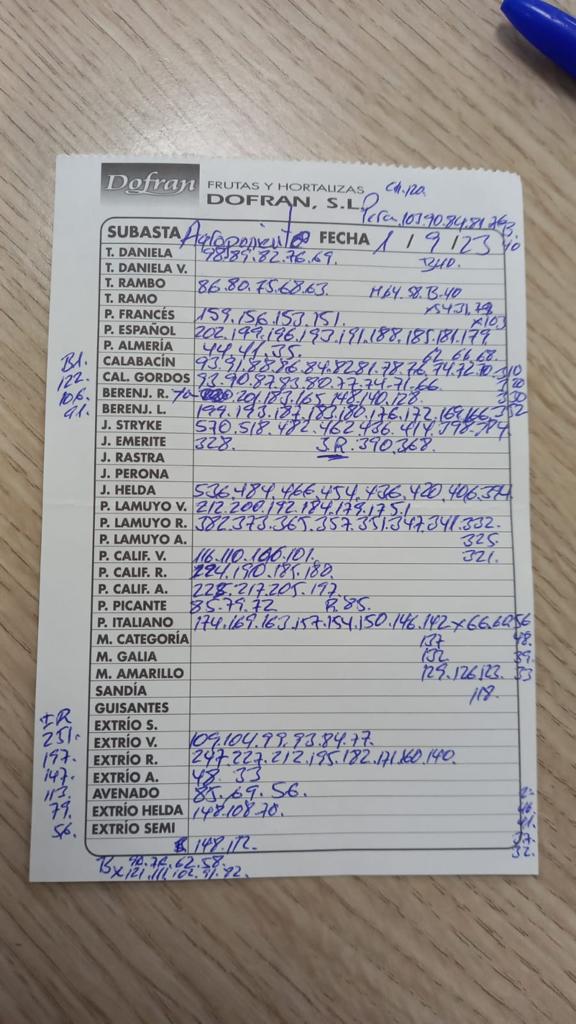 Dofran FRUTAS Y HORTALIZAS
DOFRAN, S.L.
Pera 103.90.84.81.76
SUBASTA Agroponiente FECHA 1 / 9 / 23
T. DANIELA 98.89.82.76.69. B40.
T. DANIELA V.
T. RAMBO 86.80.75.68.63. M64.58.B.40
T. RAMO
P. FRANCÉS 159.156.153.151. x103
P. ESPAÑOL 202.199.196.193.191.188.185.181.179
P. ALMERÍA 44.41.35. 62.66.68.
CALABACÍN 93.91.88.86.84.82.81.78.76.74.72.70
CAL. GORDOS 93.90.87.83.80.77.74.71.66
BERENJ. R. 201.183.165.148.140.128.
BERENJ. L. 199.193.187.183.180.176.172.169.166.
J. STRYKE 570.518.482.462.436.414.398.384
J. EMERITE 328. J.R. 390.368.
J. RASTRA
J. PERONA
J. HELDA 536.484.466.454.436.420.406.394
P. LAMUYO V. 212.200.192.184.179.175.1
P. LAMUYO R. 382.373.365.357.351.347.341.332.
P. LAMUYO A. 325
P. CALIF. V. 116.110.106.101. 321.
P. CALIF. R. 224.190.185.188.
P. CALIF. A. 228.217.205.197.
P. PICANTE 85.79.72 R.85.
P. ITALIANO 174.169.163.157.154.150.146.142 x 66.60.56
M. CATEGORÍA 137 48.
M. GALIA 132 39.
M. AMARILLO 129.126.123. 33
SANDÍA 118.
GUISANTES
EXTRÍO S.
EXTRÍO V. 109.104.99.93.84.77.
EXTRÍO R. 247.227.212.195.182.171.160.140.
EXTRÍO A. 48. 33
AVENADO 85.69.56.
EXTRÍO HELDA 148.108.70.
EXTRÍO SEMI
148.112.
B 90.76.62.58.
x 121.111.102.91.82.
B1.
122.
106.
91.
IR
231.
197.
147.
113.
79.
56.
41.
37.
32.